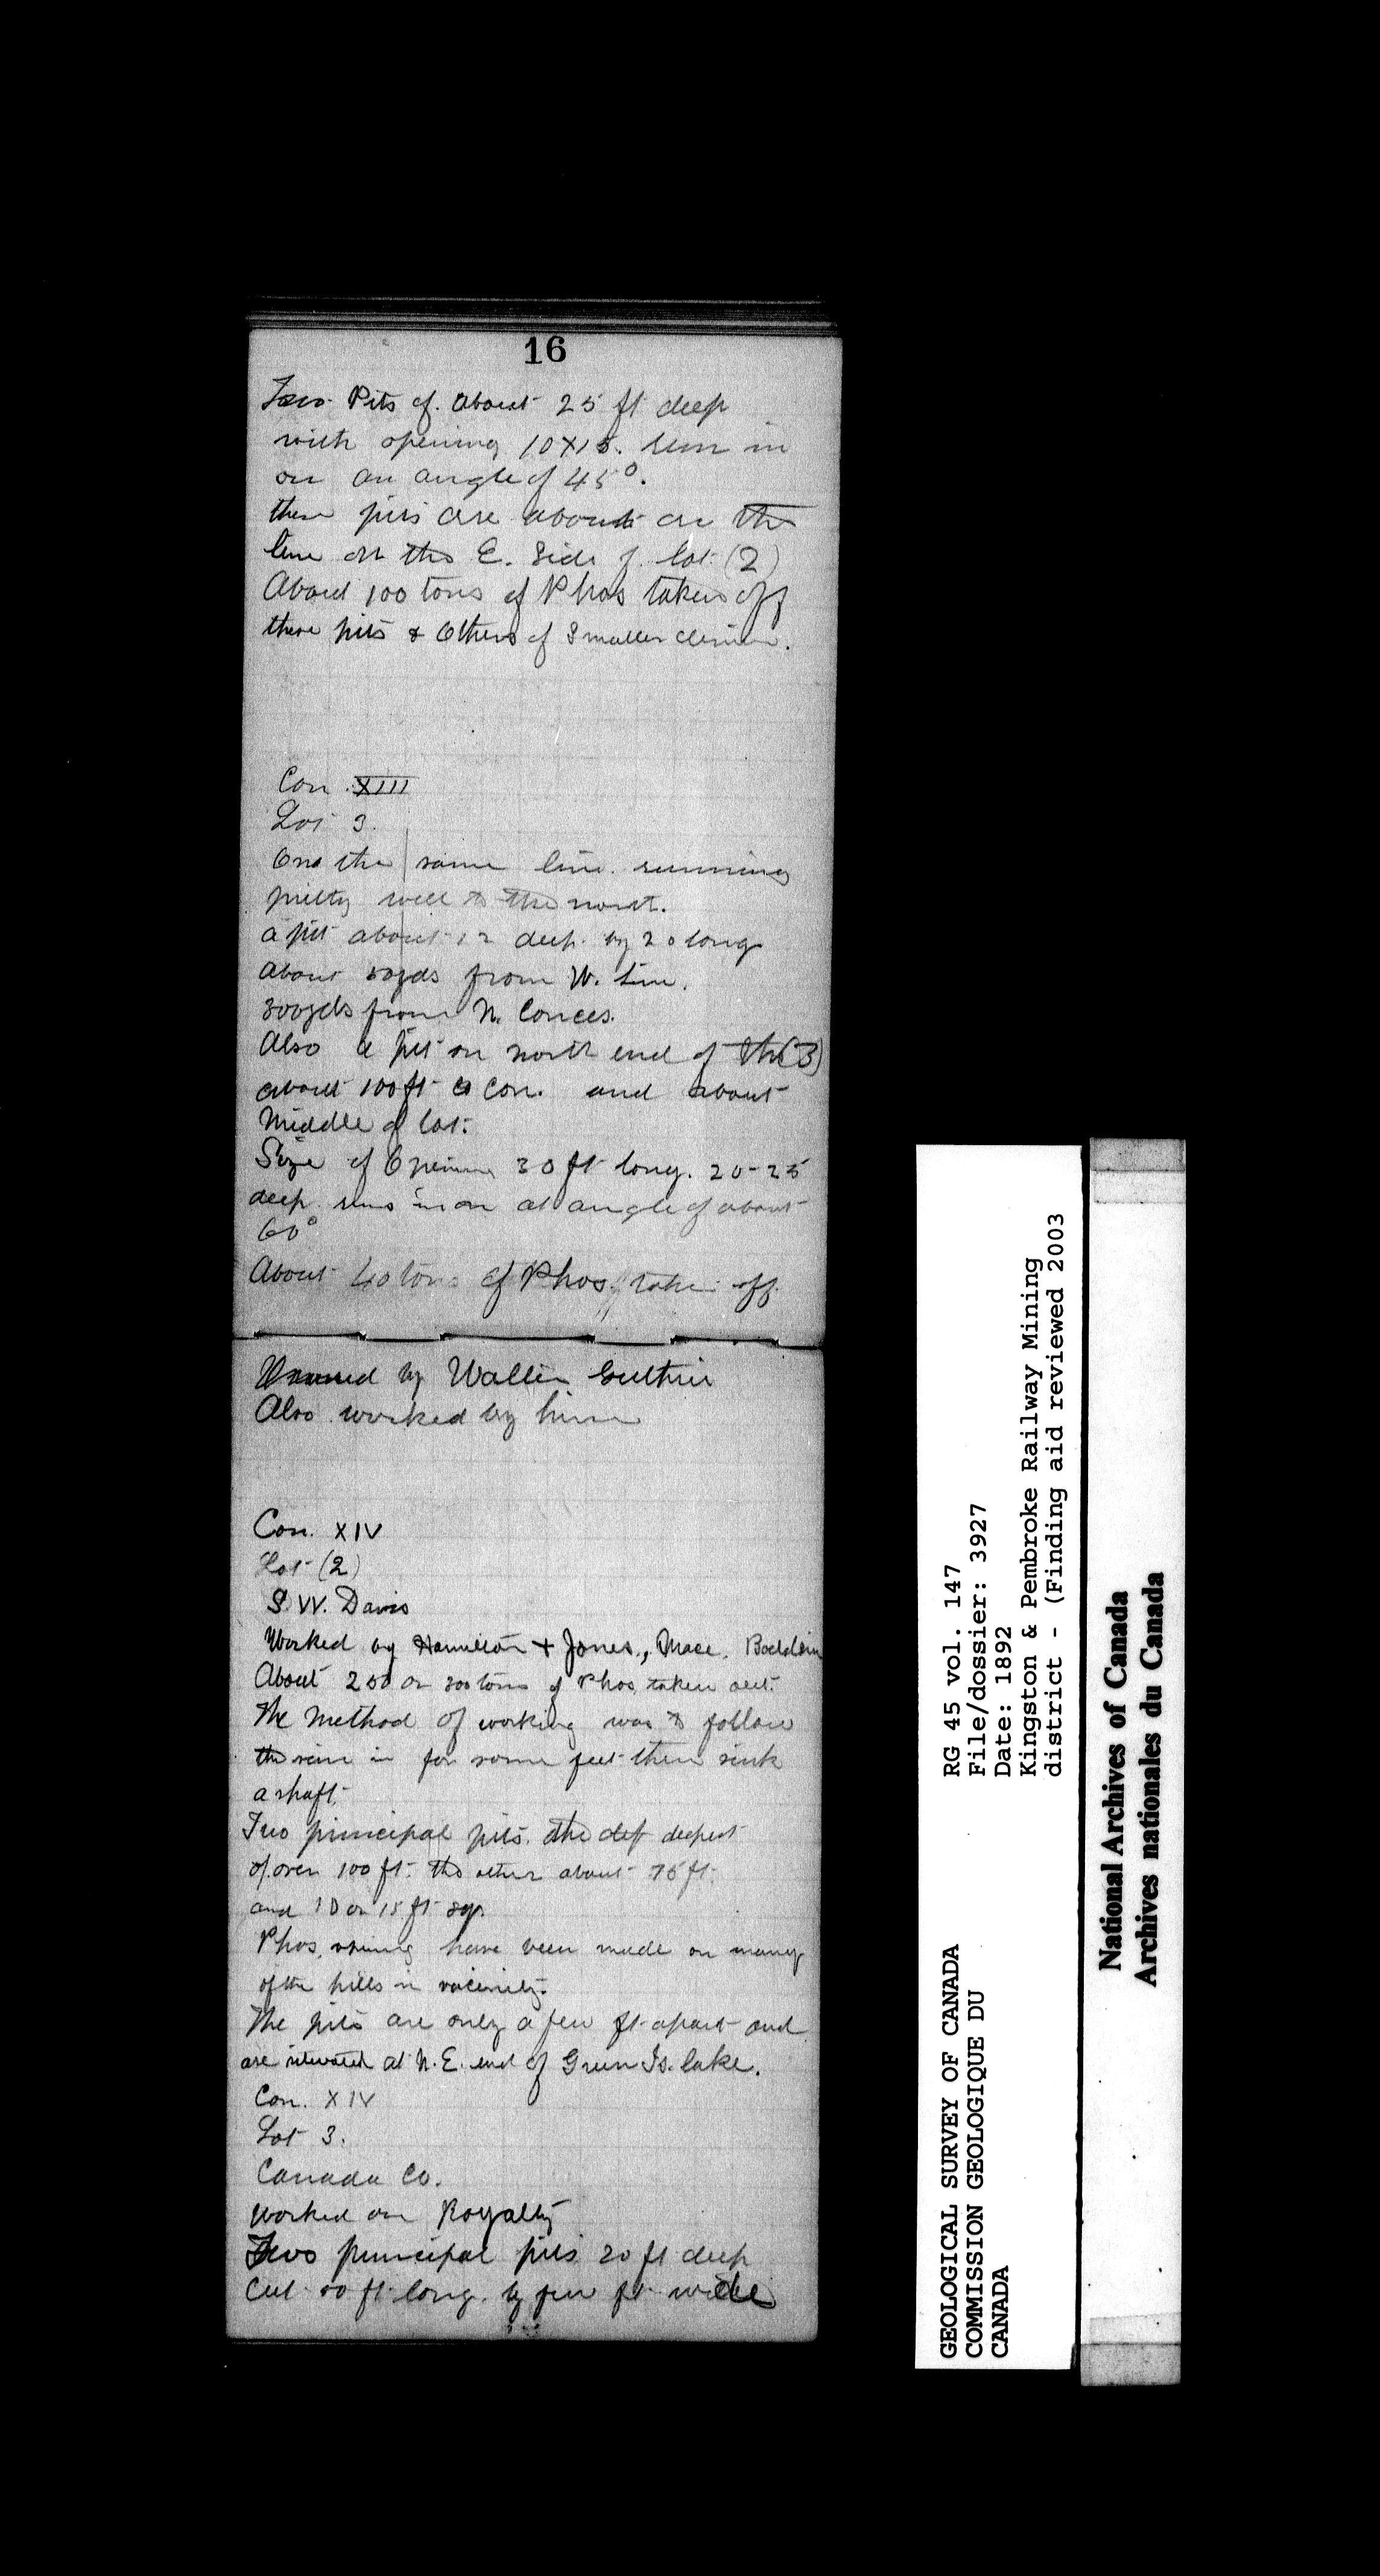 16
Two Pits of about 25 ft deep
with opening 10X15. run in
on an angle of 45°.
these pits are about on the
line on the E. Side of lot (2)
About 100 tons of Phos taken off
these pits & Others of Smaller
Con. XIII
Lot 3.
On the same line running
pretty well to the
a pit about 12 deep by 20 long
About 50yds from W. Line.
300yds from N. Conces.
Also a pit on north end of the (3)
about 100 ft to Con. and about
Middle of lot.
Size of Opening 30 ft long. 20-25
deep runs in on at angle of about
60°
About 40 tons of Phos. taken off.
Owned by Guthrie
Also worked by him
Con. XIV
Lot (2)
S. W. Davis
Worked by Hamilton + Jones.,
About 250 or 300 tons of Phos. taken out.
The Method of working was to follow
the vein in for some feet then sink
a shaft.
Two principal pits. the def deepest
of over 100 ft the other about 75 ft.
and 10 or 15 ft sq.
Phos. have been made on many
of the hills in vacinity.
The pits are only a few ft apart and
are situated at N. E. end of Green Is. lake.
Con. XIV
Lot 3.
Canada Co.
Worked on Royalty
Two principal pits 20 ft deep
Cut 50 ft long. by few ft wide
GEOLOGICAL SURVEY OF CANADA
COMMISSION GEOLOGIQUE DU
CANADA
RG 45 vol. 147
File/dossier: 3927
Date: 1892
Kingston & Pembroke Railway Mining
district - (Finding aid reviewed 2003
National Archives of Canada
Archives nationales du Canada